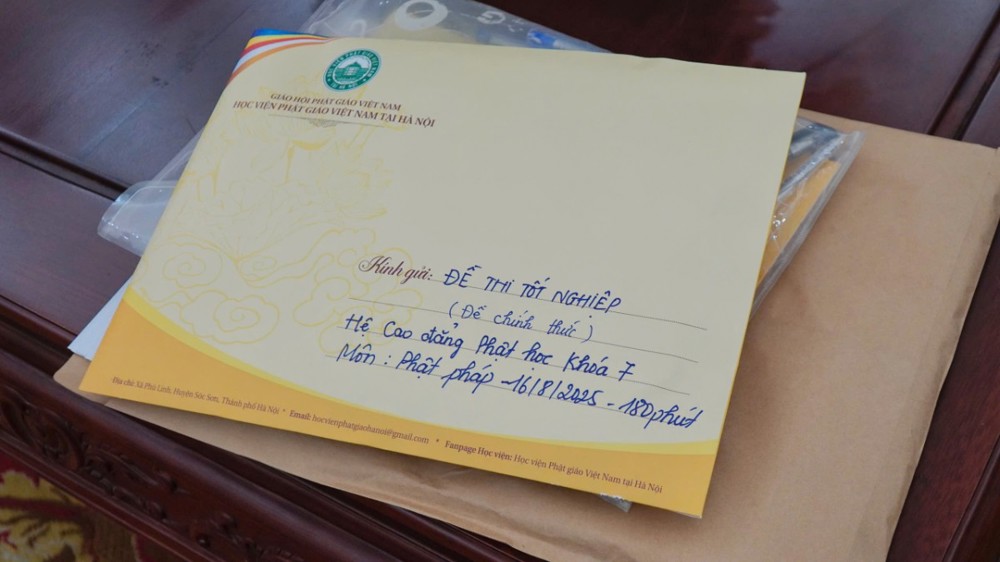 GIÁO HỘI PHẬT GIÁO VIỆT NAM
HỌC VIỆN PHẬT GIÁO VIỆT NAM TẠI HÀ NỘI
Kính gửi: ĐỀ THI TỐT NGHIỆP
(Đề chính thức)
Hệ Cao đẳng Phật học Khóa 7
Môn : Phật pháp - 16/8/2025 - 180 phút
Địa chỉ: Xã Phù Linh, Huyện Sóc Sơn, Thành phố Hà Nội * Email: hocvienphatgiaohanoi@gmail.com * Fanpage Học viện: Học viện Phật giáo Việt Nam tại Hà Nội